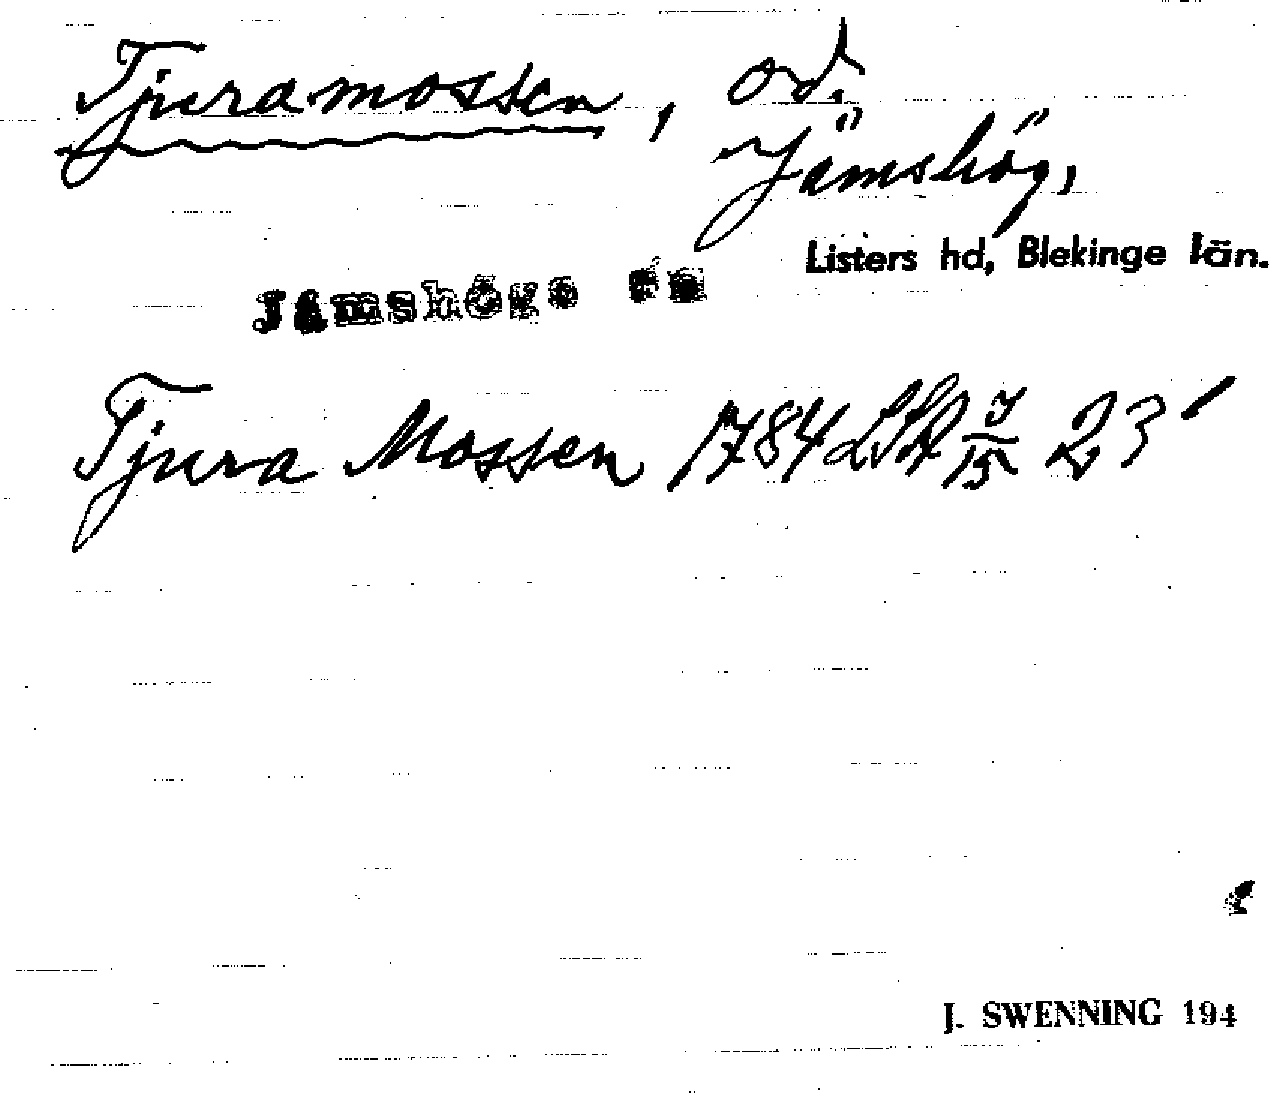 Tjuramossen, od.
Jämshög,
Listers hd, Blekinge län.
Jämshögs sn
Tjura Mossen 1784 LSA J/15 23'
J. SWENNING 194